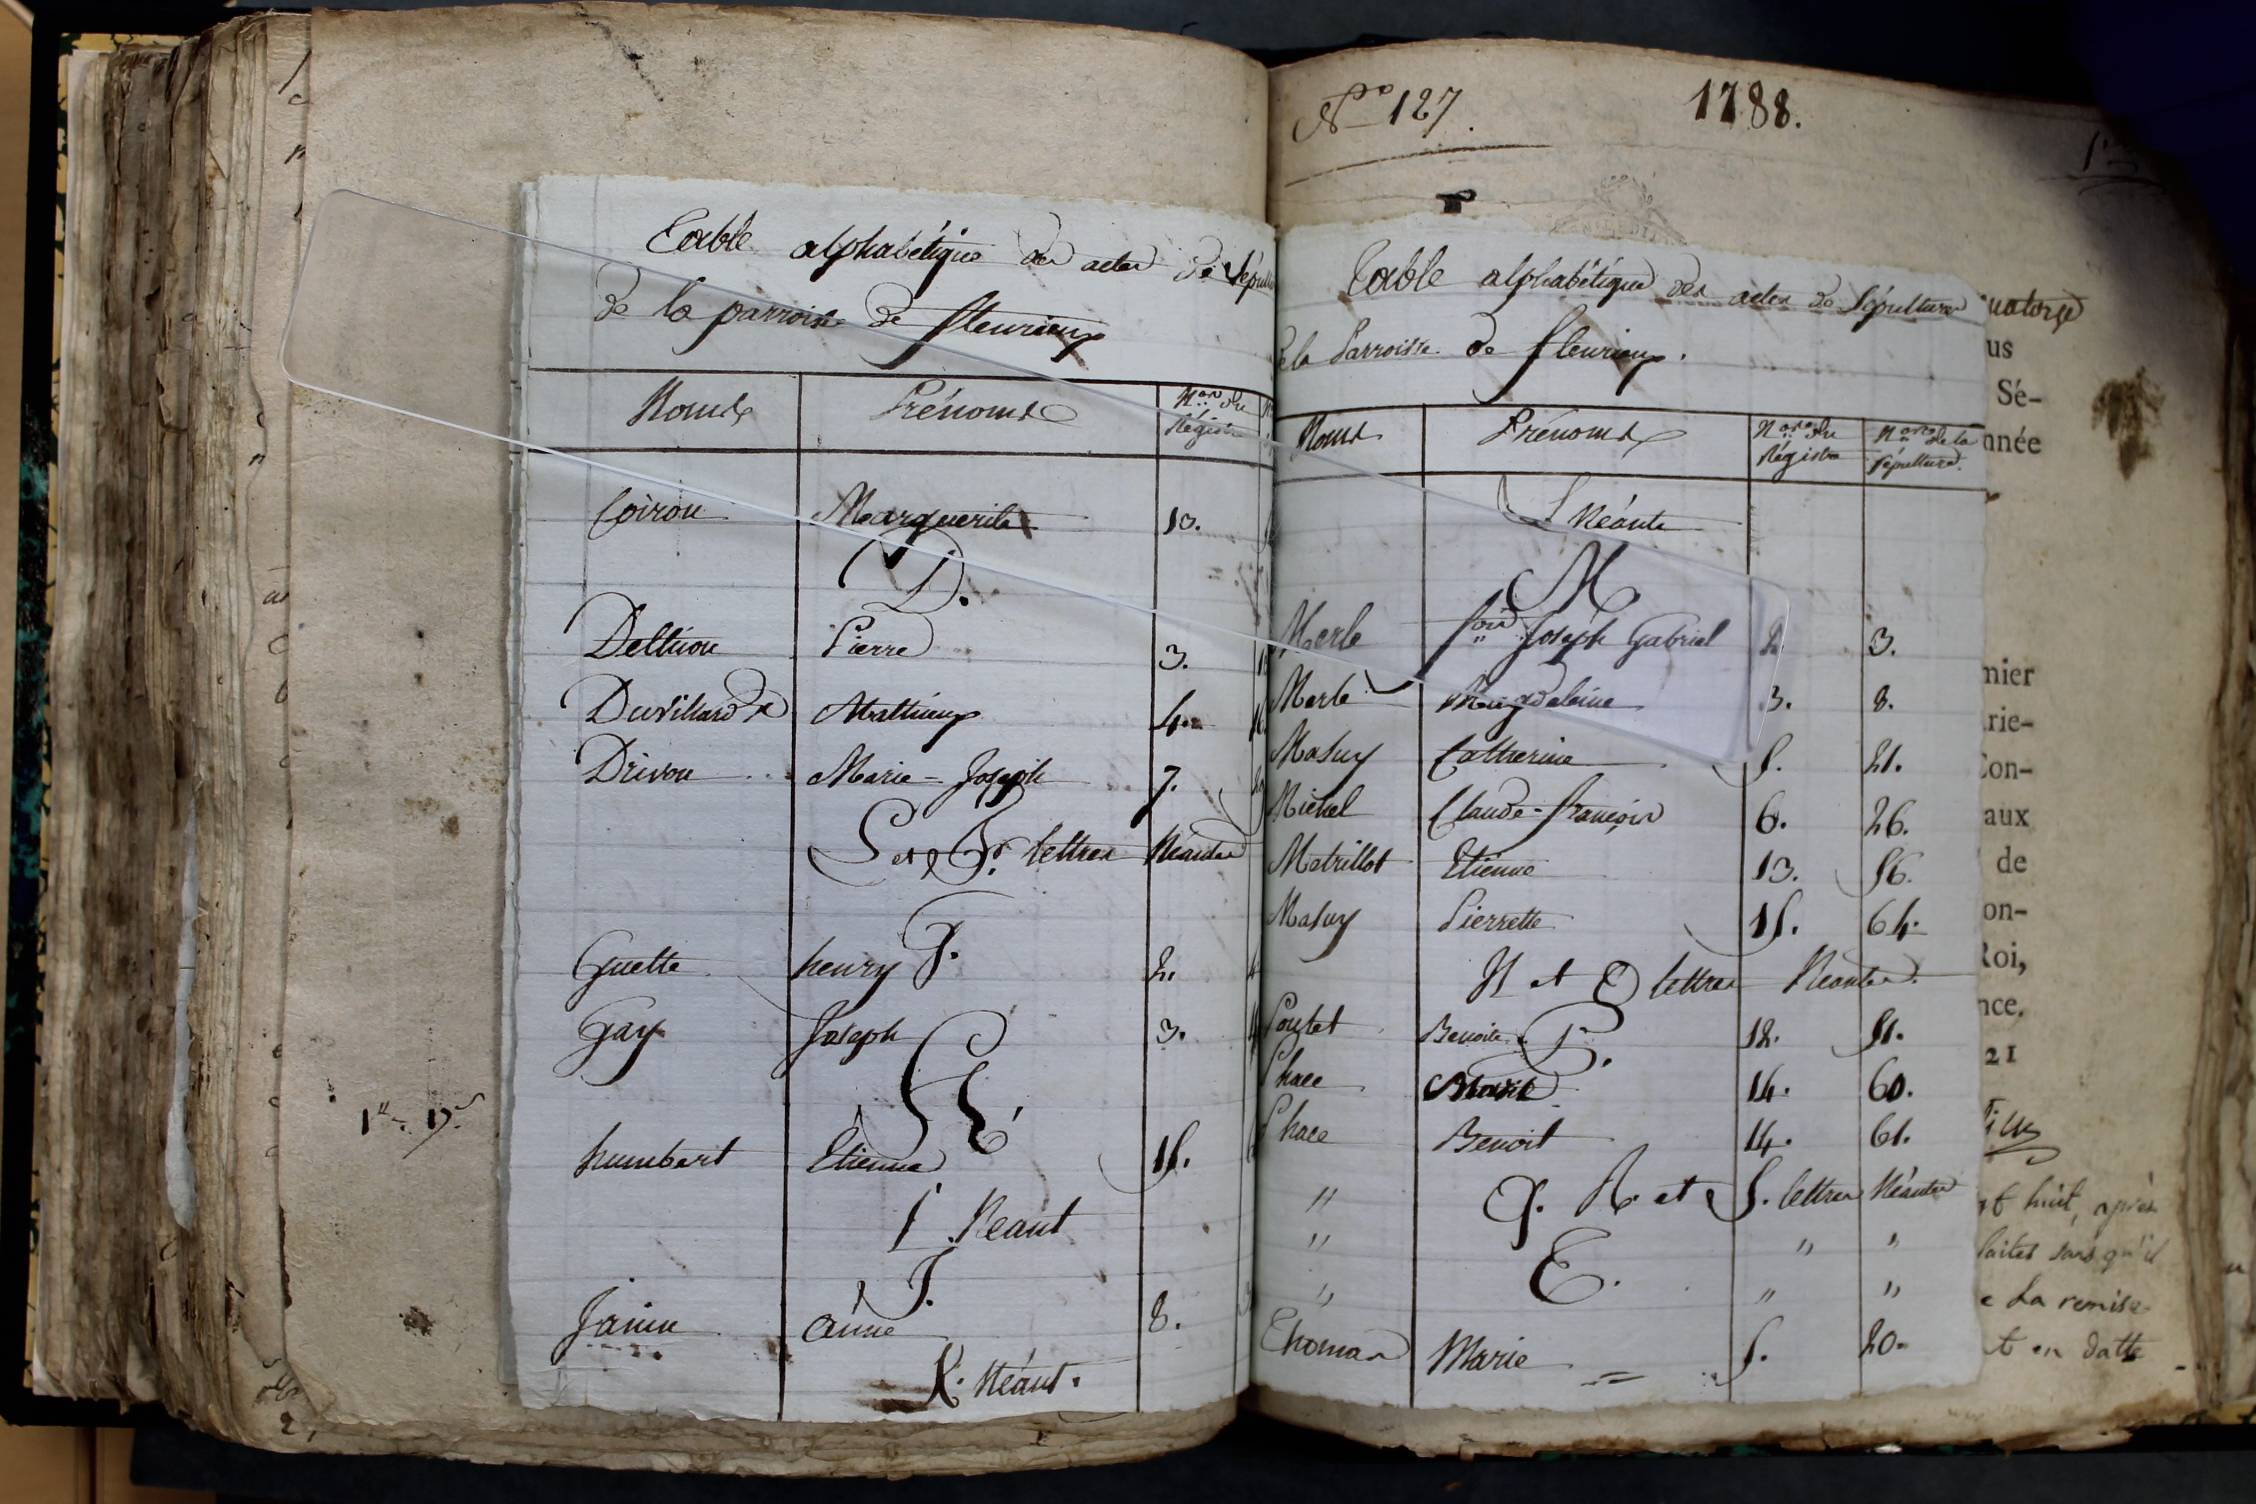 Table alphabétique des actes de Sépultu
de la parroisse de fleurieux
Noms Prénoms Nos du Régistre
Coiron Marguerite 13.
D.
Delhion Pierre 3.
Duvillard Mathieux 4.
Drivon Marie-Joseph 7.
E et F. lettres Néantes
G.
Guette henry 2.
Gay Joseph 3.
H
humbert Etienne 15.
I Neant
J.
Janin anne 8.
K. Néant.
No 127. 1788.
Table alphabétique des actes de Sépultures
de la Parroisse de fleurieux.
Noms Prénoms Nos du Régistre Nos de la Sépulture.
L Néante
M
Merle Joseph Gabriel 2. 3.
Merle Magdeleine 3. 8.
Masuy Catherine 5. 21.
Michel Claude-françois 6. 26.
Metrillot Etienne 13. 56.
Masuy Pierrette 15. 64.
N et O lettres Néantes.
P.
Poutet Benoite 12. 51.
Phace Marie 14. 60.
Phace Benoit 14. 61.
" Q. R. et S. lettres Néantes
" T. " "
" " "
Thomas Marie 5. 20.
uatorze
us
Sé-
nnée
mier
rie-
Con-
aux
de
on-
Roi,
nce.
21
huit, après
faites sans qu'il
e La remise
t en datte